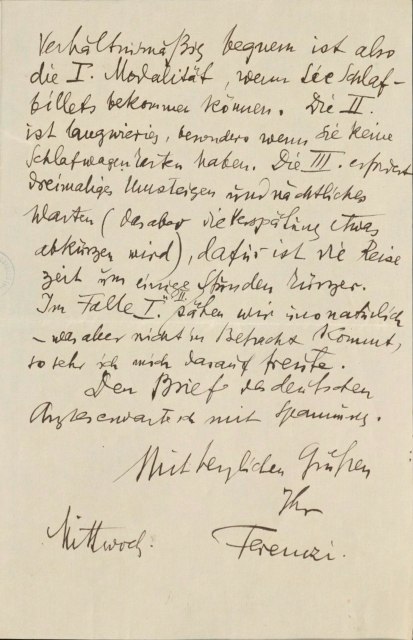 Verhältnismäßig bequem ist also
die I. Modalität, wenn Sie Schlaf-
billets bekommen können. Die II.
ist langwierig, besonders wenn Sie keine
Schlafwagenkarten haben. Die III. erfordert
dreimaliges Umsteigen und nächtliches
Warten (das aber die Verspätung etwas
abkürzen wird), dafür ist die Reise
zeit um einige Stunden kürzer.
Im Falle I. II. sähen wir uns natürlich
– was aber nicht in Betracht kommt,
so sehr ich mich darauf freute.
Den Brief des deutschen
Arztes erwarte ich mit Spannung.
Mit herzlichen Grüßen
Ihr
Mittwoch. Ferenczi.